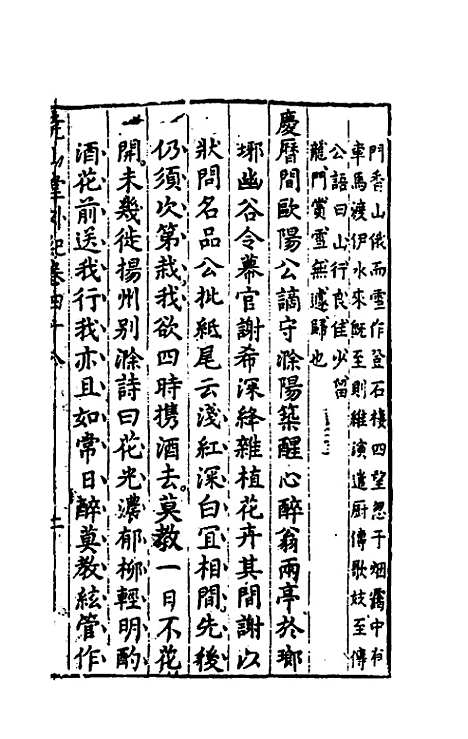 門香山俄而雪作登石樓四望忽于烟靄中有
車馬渡伊水來旣至則維演遣厨傳歌妓至傳
公語曰山行良佳少留
龍門賞雪無遽歸也
慶曆間歐陽公謫守滁陽築醒心醉翁兩亭於瑯
琊幽谷令幕官謝希深絳雜植花卉其間謝以
狀問名品公批紙尾云淺紅深白宜相間先後
仍須次第栽我欲四時携酒去莫教一日不花
開未幾徙揚州别滁詩曰花光濃郁柳輕明酌
酒花前送我行我亦且如常日醉莫教絃管作
堯山堂外紀卷四十八